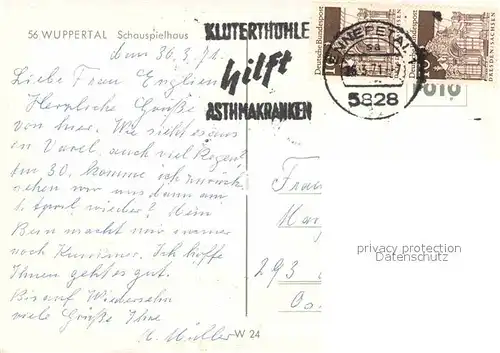 56 WUPPERTAL Schauspielhaus
KLUTERTHÖHLE
hilft
ASTHMAKRANKEN
GENNEPETAL 1
5828
Deutsche Bundespost
DRESDEN-SACHSEN
Deutsche Bundespost
DRESDEN-SACHSEN
FOTO
den 26.3.71.
Liebe Frau
Herzliche Grüße
von hier. Wie sieht es aus
in Varel, auch viel Regen?
Am 30. komme ich zurück
sehen wir uns dann am
1. April wieder? Mein
Bein macht mir immer
noch Kummer. Ich hoffe
Ihnen geht es gut.
Bis auf Wiedersehn
viele Grüße Ihre
Müller
W 24
Frau
293
privacy protection
Datenschutz